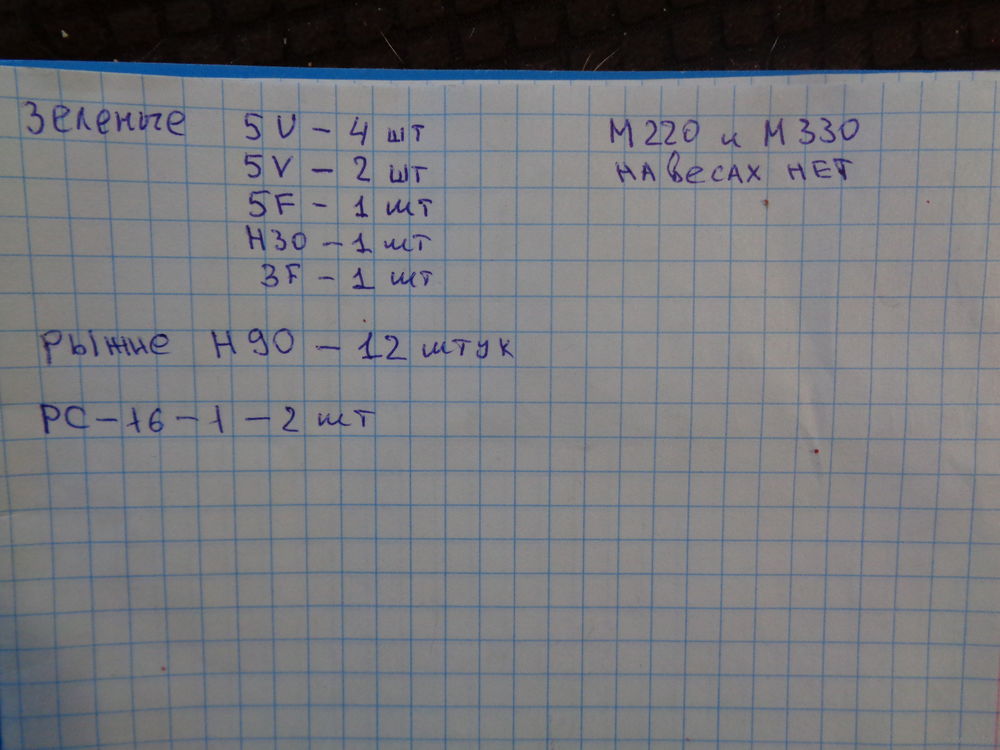 Зеленые 5U - 4 шт
5V - 2 шт
5F - 1 шт
Н30 - 1 шт
3F - 1 шт
М220 и М330
на весах нет
Рыжие Н90 - 12 штук
РС-16-1 - 2 шт